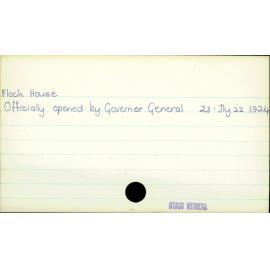 Flock House
Officially opened by Governor General 23. Jly 22 1924
OTAGO WITNESS.